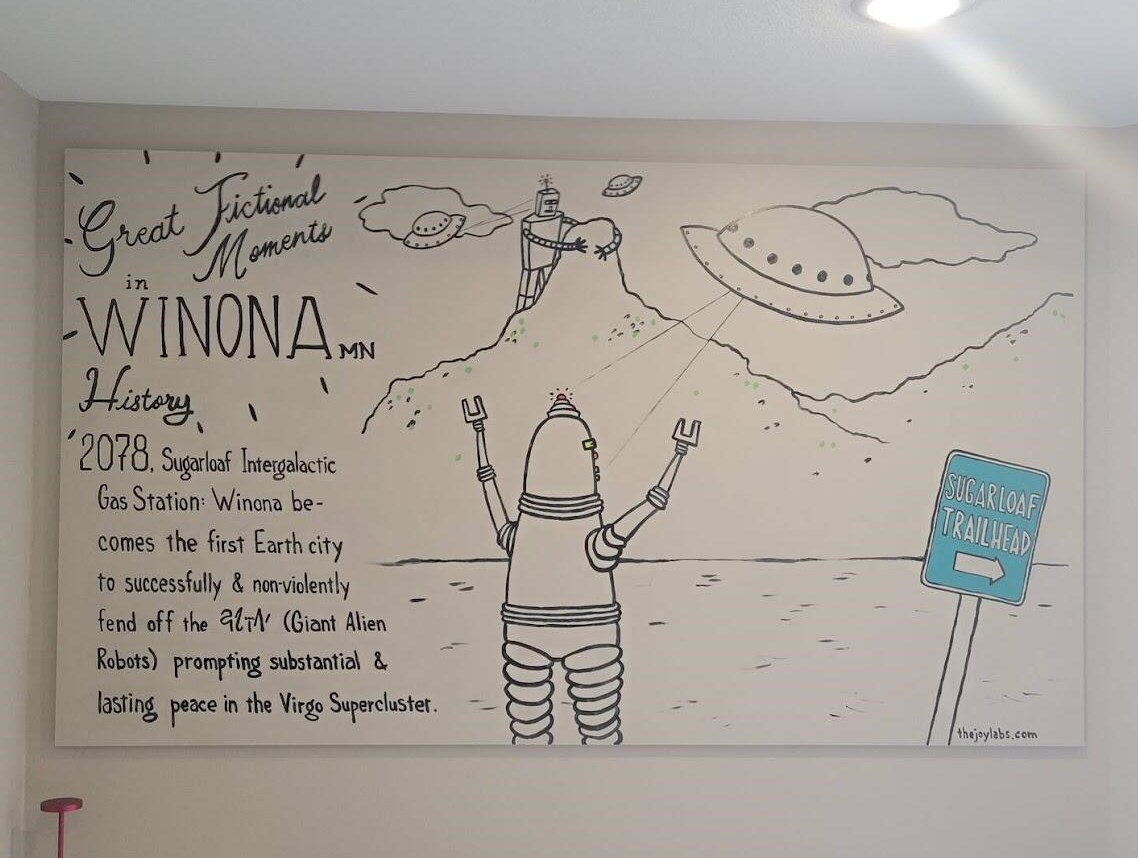 Great Fictional
Moments
in
WINONA MN
History
2078, Sugarloaf Intergalactic
Gas Station: Winona be-
comes the first Earth city
to successfully & non-violently
fend off the (Giant Alien
Robots) prompting substantial &
lasting peace in the Virgo Supercluster.
SUGARLOAF
TRAILHEAD
thejoylabs.com